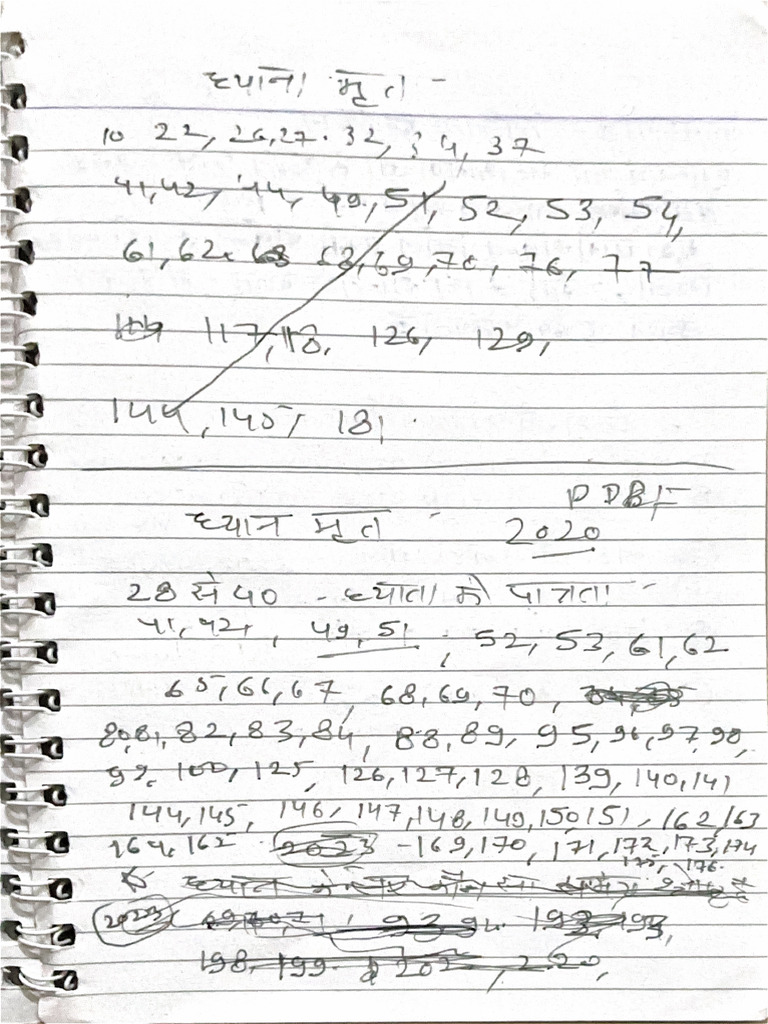 ध्याना मृत -
10 22, 26, 27. 32, 34, 37
41, 42, 44, 49, 51, 52, 53, 54,
61, 62, 63 68, 69, 70, 76, 77
109 117, 118, 126, 129,
144, 145, 181.
PDBF
ध्यान मृत - 2020
28 से 40 - ध्याता की पात्रता -
41, 42, 49, 51, 52, 53, 61, 62
65, 66, 67, 68, 69, 70,
80, 81, 82, 83, 84, 88, 89, 95, 96, 97, 98,
99, 100, 125, 126, 127, 128, 139, 140, 141
144, 145, 146, 147, 148, 149, 150, 151, 162, 163
164, 165 2023 - 169, 170, 171, 172, 173, 174
175, 176.
ध्यान के लिए कौन सा
2023 93 94. 193, 193,
198, 199. 202, 220,